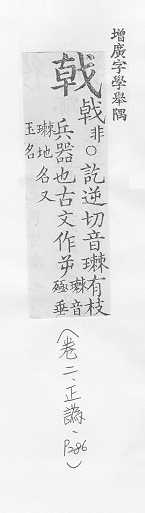 增廣字學舉隅
戟
戟非○訖逆切音有枝
兵器也古文作
音
殛垂
地名又
玉名
（卷二、正譌、P286）